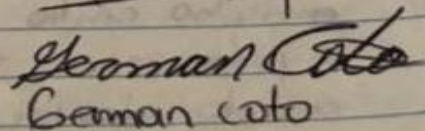 German Coto
German coto